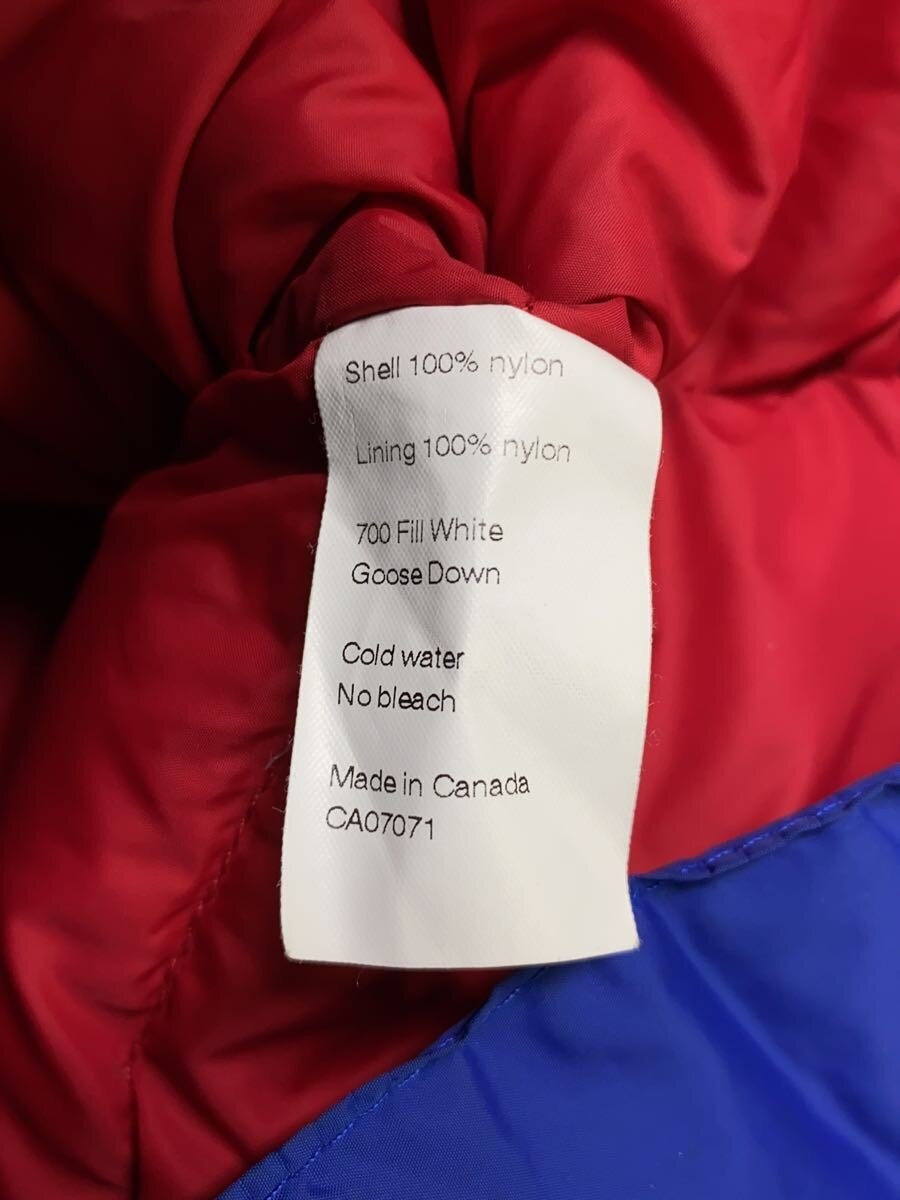 Shell 100% nylon
Lining 100% nylon
700 Fill White
Goose Down
Cold water
No bleach
Made in Canada
CA07071